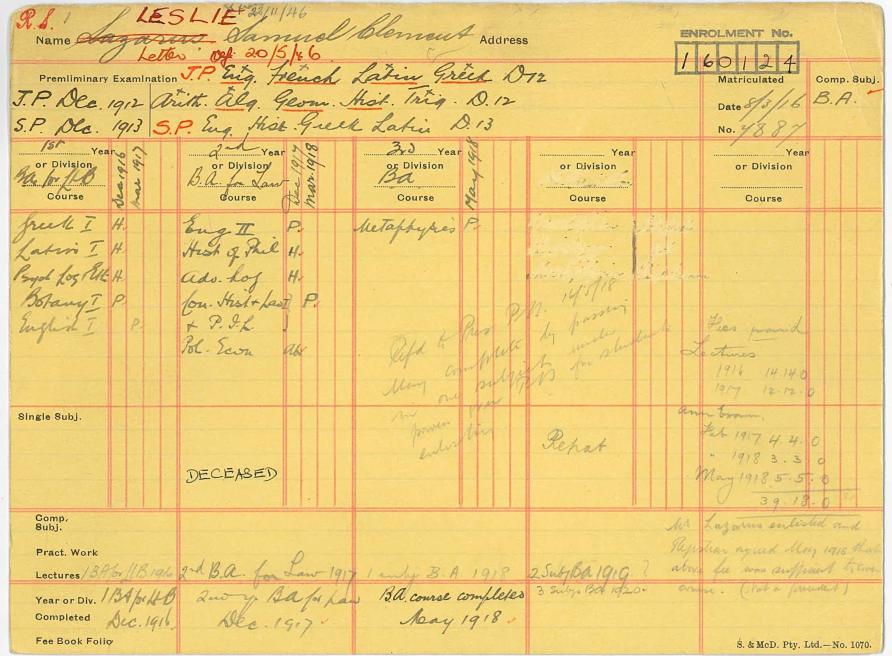 R.S. LESLIE 22/11/46
Name Lazarus Samuel Clement Address
Letter 20/5/46
ENROLMENT No.
160124
Premliminary Examination J.P. Eng. French Latin Greek D12
J.P. Dec. 1912 Arith. Alg. Geom. Hist. Trig. D.12
S.P. Dec. 1913 S.P. Eng Hist. Greek Latin D.13
Matriculated
Date 8/3/16
No. 7887
Comp. Subj.
B.A.
1st Year
or Division
BA for LLB
Course
Dec 1916
Mar 1917
2nd Year
or Division
B.A. for Law
Course
Dec 1917
Mar 1918
3rd Year
or Division
BA
Course
May 1918
Year
or Division
Course
Year
or Division
Course
Greek I H.
Latin I H.
Psych Log Eth H.
Botany I P.
English I P.
Eng II P.
Hist of Phil H.
Adv. Log H.
Con. Hist & Law I P.
& P.I.L
Pol. Econ Abs
Metaphysics P.
Refd to Prof. Bd. 14/5/18
May complete by passing
in one subject under
for students
enlisting
Repat
Fees
Lectures
1916 14.14.0
1917 12.12.0
Ann Exam.
Feb 1917 4.4.0
" 1918 3.3.0
May 1918 5.5.0
39.18.0
Single Subj.
DECEASED
Comp.
Subj.
Pract. Work
Lectures 1 BA for LLB 1916 2nd B.A. for Law 1917 1 only B.A 1918 2 Subj BA 1919 ?
3 Subjs BA 1920
Mr Lazarus enlisted and
Registrar agreed May 1918 that
above fee was sufficient to cover
course. (Not a precedent)
Year or Div. 1 BA for LLB 2nd yr BA for Law B.A. course completed
Completed Dec. 1916 Dec. 1917 May 1918
Fee Book Folio
S. & McD. Pty. Ltd.—No. 1070.